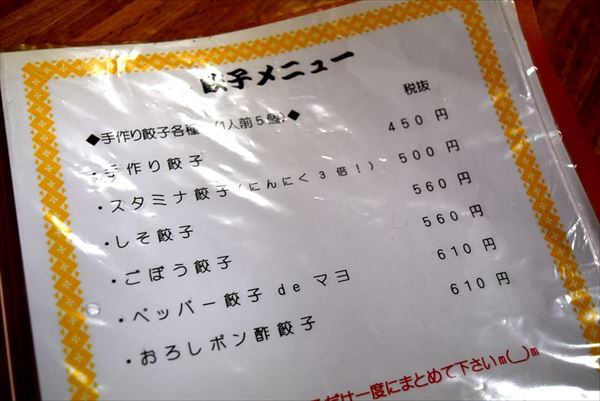 餃子メニュー
税抜
◆手作り餃子各種 (1人前5個)◆
・手作り餃子 450円
・スタミナ餃子(にんにく3倍!) 500円
・しそ餃子 560円
・ごぼう餃子 560円
・ペッパー餃子 de マヨ 610円
・おろしポン酢餃子 610円
だけ一度にまとめて下さいm(__)m